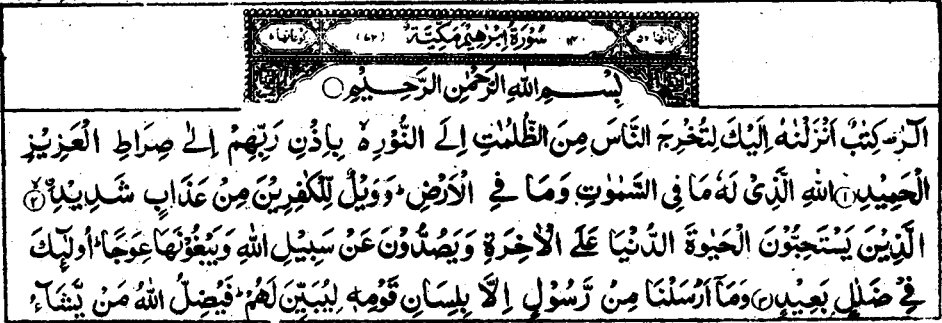 اٰیاتھا ۵۲ ۱۴ سُوْرَۃُ اِبْرٰهِیْمَ مَکِّیَّۃٌ (۷۲) رکوعاتھا ۷
بِسْمِ اللهِ الرَّحْمٰنِ الرَّحِیْمِ
الٓرٰ کِتٰبٌ اَنْزَلْنٰهُ اِلَیْکَ لِتُخْرِجَ النَّاسَ مِنَ الظُّلُمٰتِ اِلَی النُّوْرِ ۵ بِاِذْنِ رَبِّهِمْ اِلٰی صِرَاطِ الْعَزِیْزِ
الْحَمِیْدِ ۱ اللهِ الَّذِیْ لَهٗ مَا فِی السَّمٰوٰتِ وَمَا فِی الْاَرْضِ ؕ وَوَیْلٌ لِّلْکٰفِرِیْنَ مِنْ عَذَابٍ شَدِیْدِ ۙ ۲
الَّذِیْنَ یَسْتَحِبُّوْنَ الْحَیٰوةَ الدُّنْیَا عَلَی الْاٰخِرَةِ وَیَصُدُّوْنَ عَنْ سَبِیْلِ اللهِ وَیَبْغُوْنَهَا عِوَجًا ؕ اُولٰٓئِکَ
فِیْ ضَلٰلٍ بَعِیْدٍ ۳ وَمَاۤ اَرْسَلْنَا مِنْ رَّسُوْلٍ اِلَّا بِلِسَانِ قَوْمِهٖ لِیُبَیِّنَ لَهُمْ ؕ فَیُضِلُّ اللهُ مَنْ یَّشَآءُ